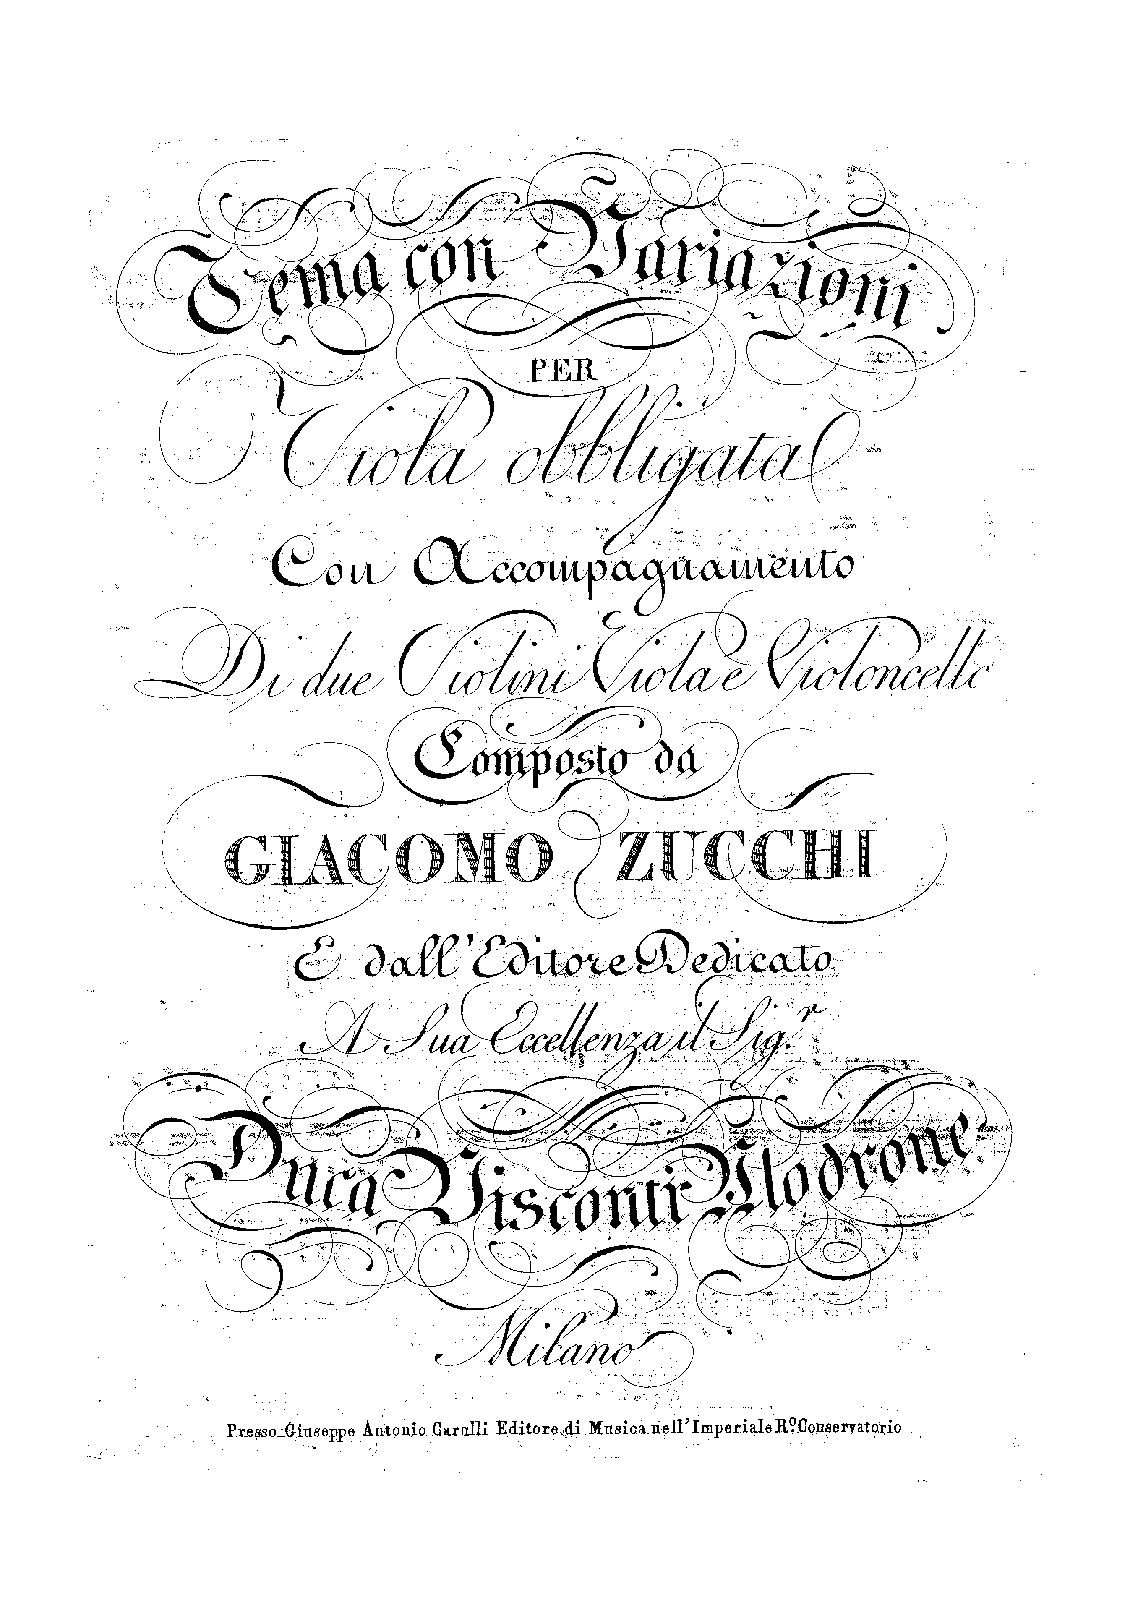 Tema con Variazioni
PER
Viola obbligata
Con Accompagnamento
Di due Violini Viola e Violoncello
Composto da
GIACOMO ZUCCHI
E dall'Editore Dedicato
A Sua Eccellenza il Sig.r
Duca Visconti Modrone
Milano
Presso Giuseppe Antonio Carulli Editore di Musica nell'Imperiale R.o Conservatorio